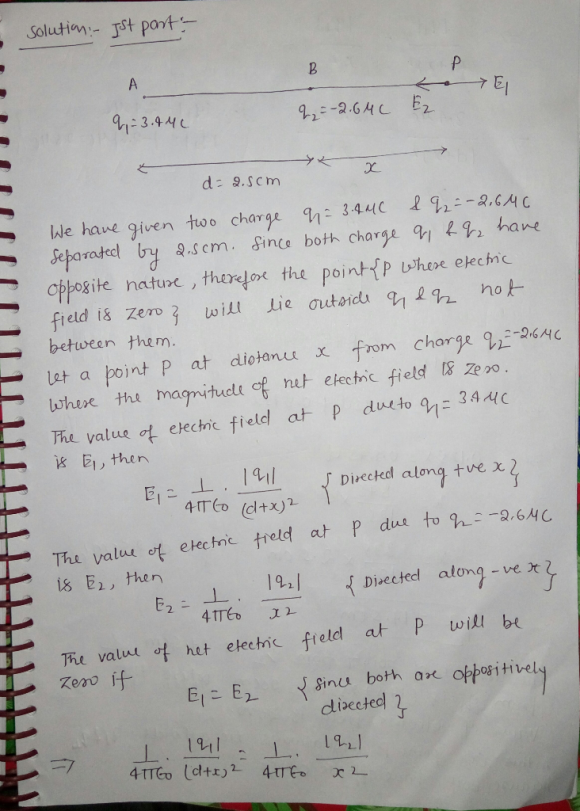 Solution:- Ist part:-
A B P E₁
q₁=3.4μC q₂=-2.6μC E₂
d= 2.5cm x
We have given two charge q₁= 3.4μC & q₂=-2.6μC
separated by 2.5cm. Since both charge q₁ & q₂ have
opposite nature, therefore the point {P where electric
field is zero} will lie outside q₁ & q₂ not
between them.
Let a point P at distance x from charge q₂=-2.6μC
where the magnitude of net electric field is zero.
The value of electric field at P due to q₁= 3.4μC
is E₁, then
E₁ = 1/4πε₀ · |q₁|/(d+x)² {Directed along +ve x}
The value of electric field at P due to q₂=-2.6μC
is E₂, then
E₂ = 1/4πε₀ · |q₂|/x² {Directed along -ve x}
The value of net electric field at P will be
zero if
E₁ = E₂ {since both are oppositively
directed}
⇒ 1/4πε₀ · |q₁|/(d+x)² = 1/4πε₀ · |q₂|/x²